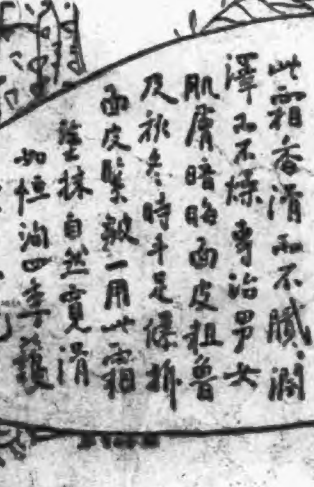 此霜香滑而不膩潤
澤而不燥專治男女
肌膚暗晦面皮粗魯
及秋冬時手足燥拆
面皮緊皺一用此霜
塗抹自然寬滑
如恒洵四季護